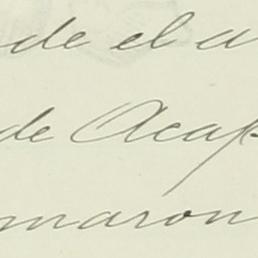 de el a
de Acap
maron